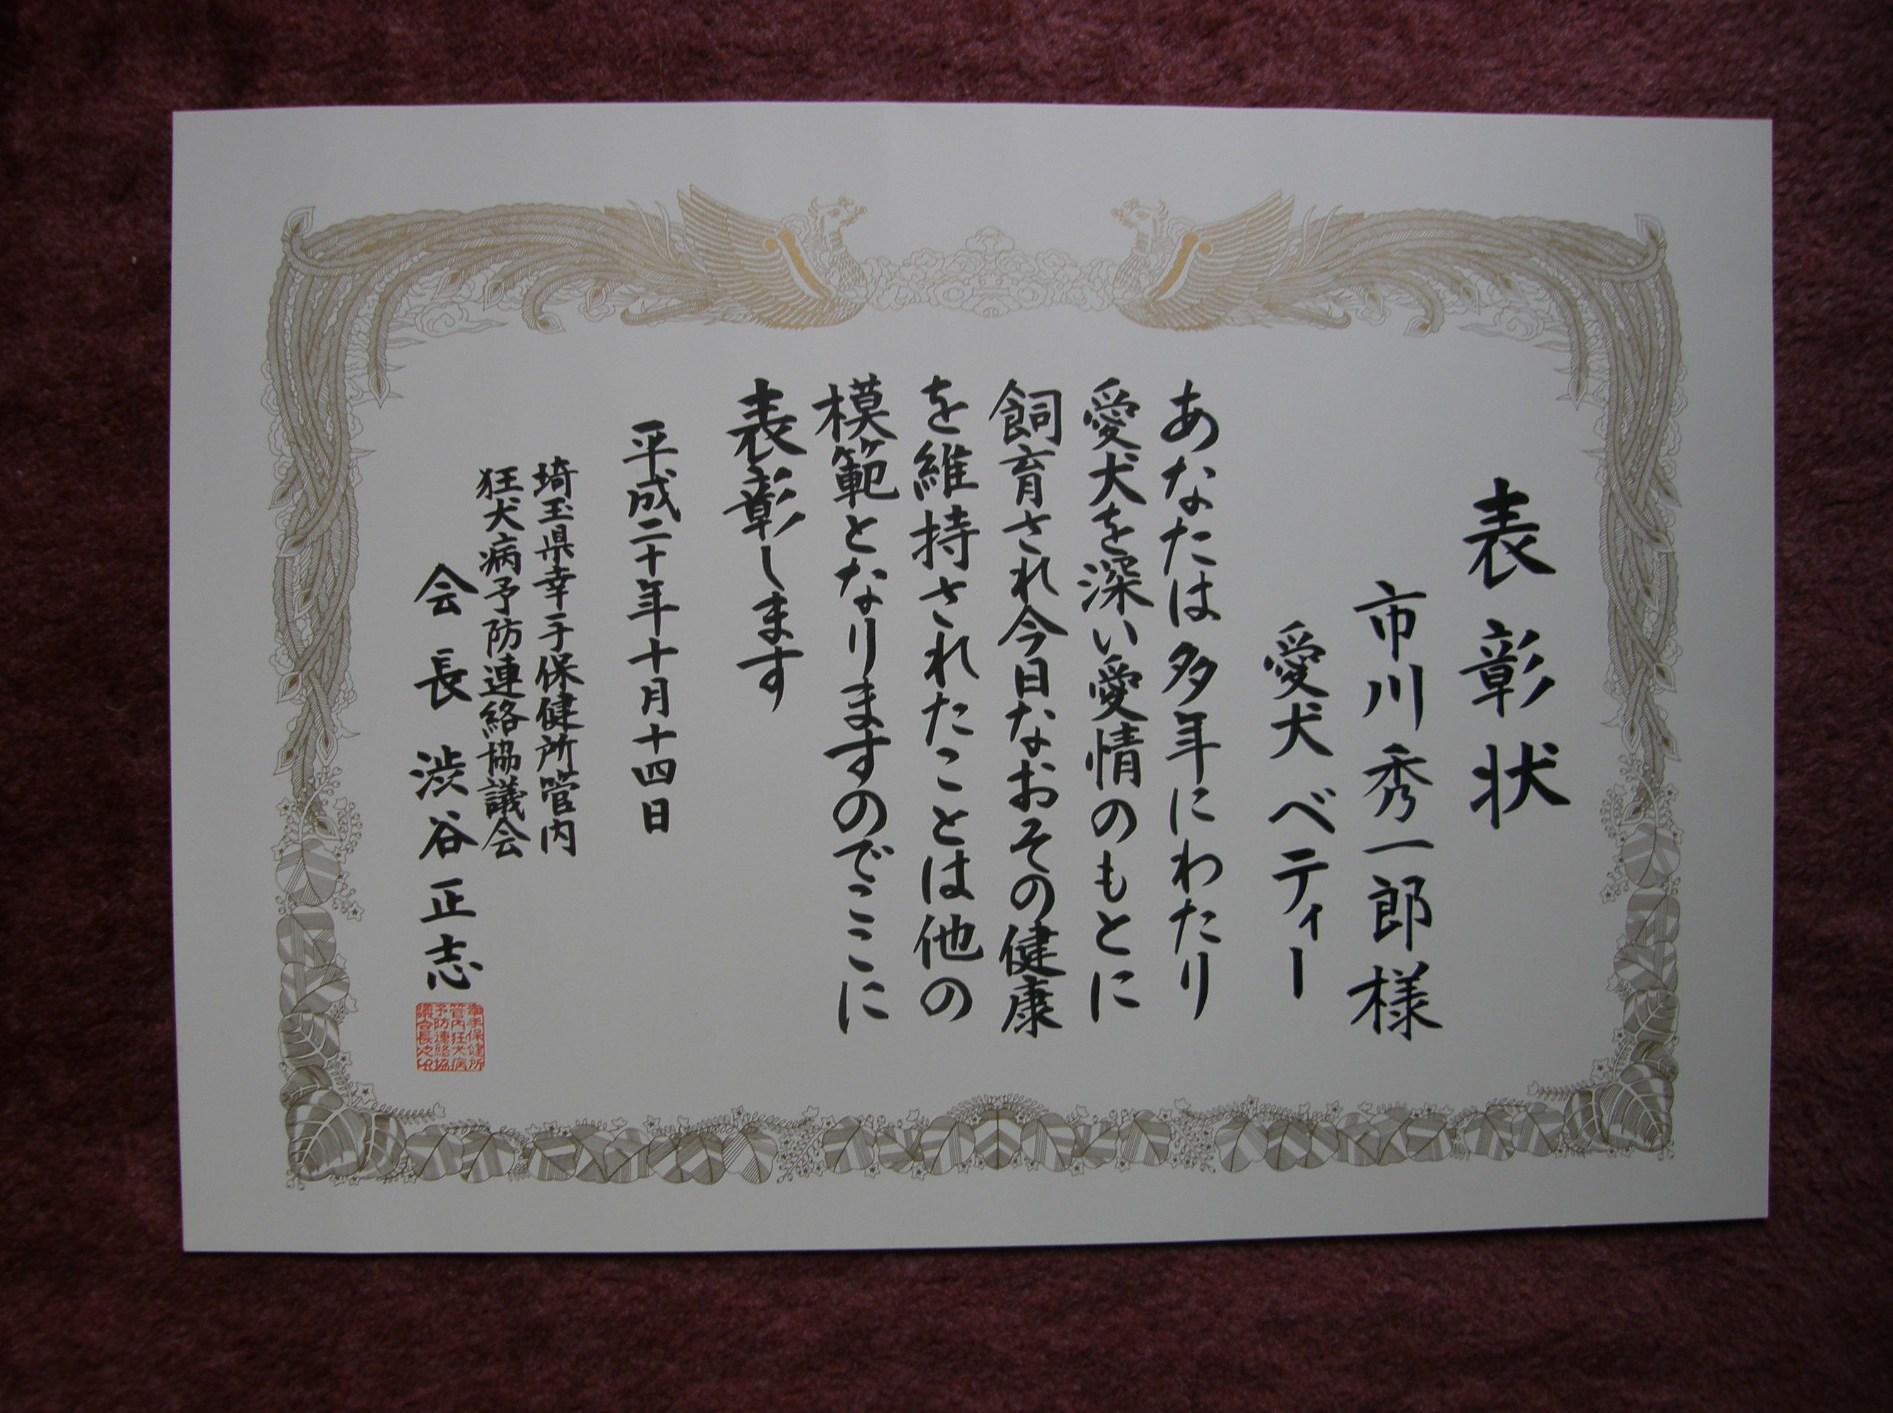 表彰状
市川秀一郎様
愛犬 ベティー
あなたは多年にわたり
愛犬を深い愛情のもとに
飼育され今日なおその健康
を維持されたことは他の
模範となりますのでここに
表彰します
平成二十年十月十四日
埼玉県幸手保健所管内
狂犬病予防連絡協議会
会長 渋谷正志
幸手保健所
管内狂犬病
予防連絡協
議会長之印